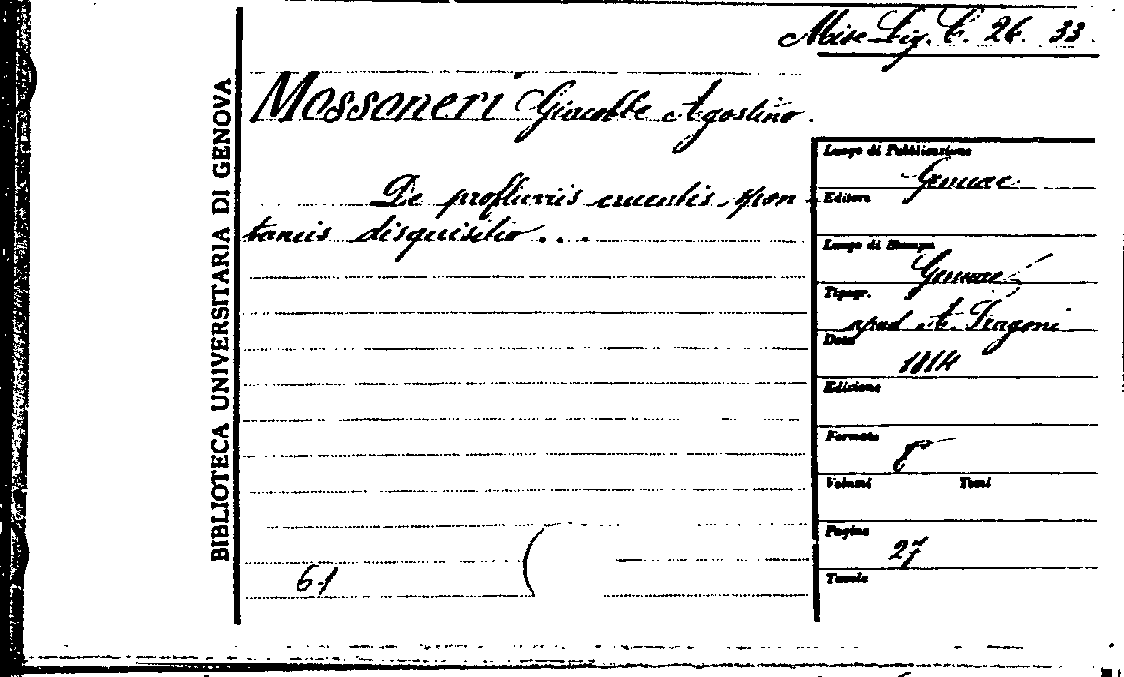 Misc. Lig. C. 26. 33.
BIBLIOTECA UNIVERSITARIA DI GENOVA
Mossoneri Giacobbe Agostino.
De profluviis cruentis spon
taneis disquisitio...
Luogo di Pubblicazione
Genuae
Editore
Luogo di Stampa
Genuae
Tipogr.
apud A. Fragoni
Data
1814
Edizione
Formato
8°
Volumi Tomi
Pagine
27
Tavole
61